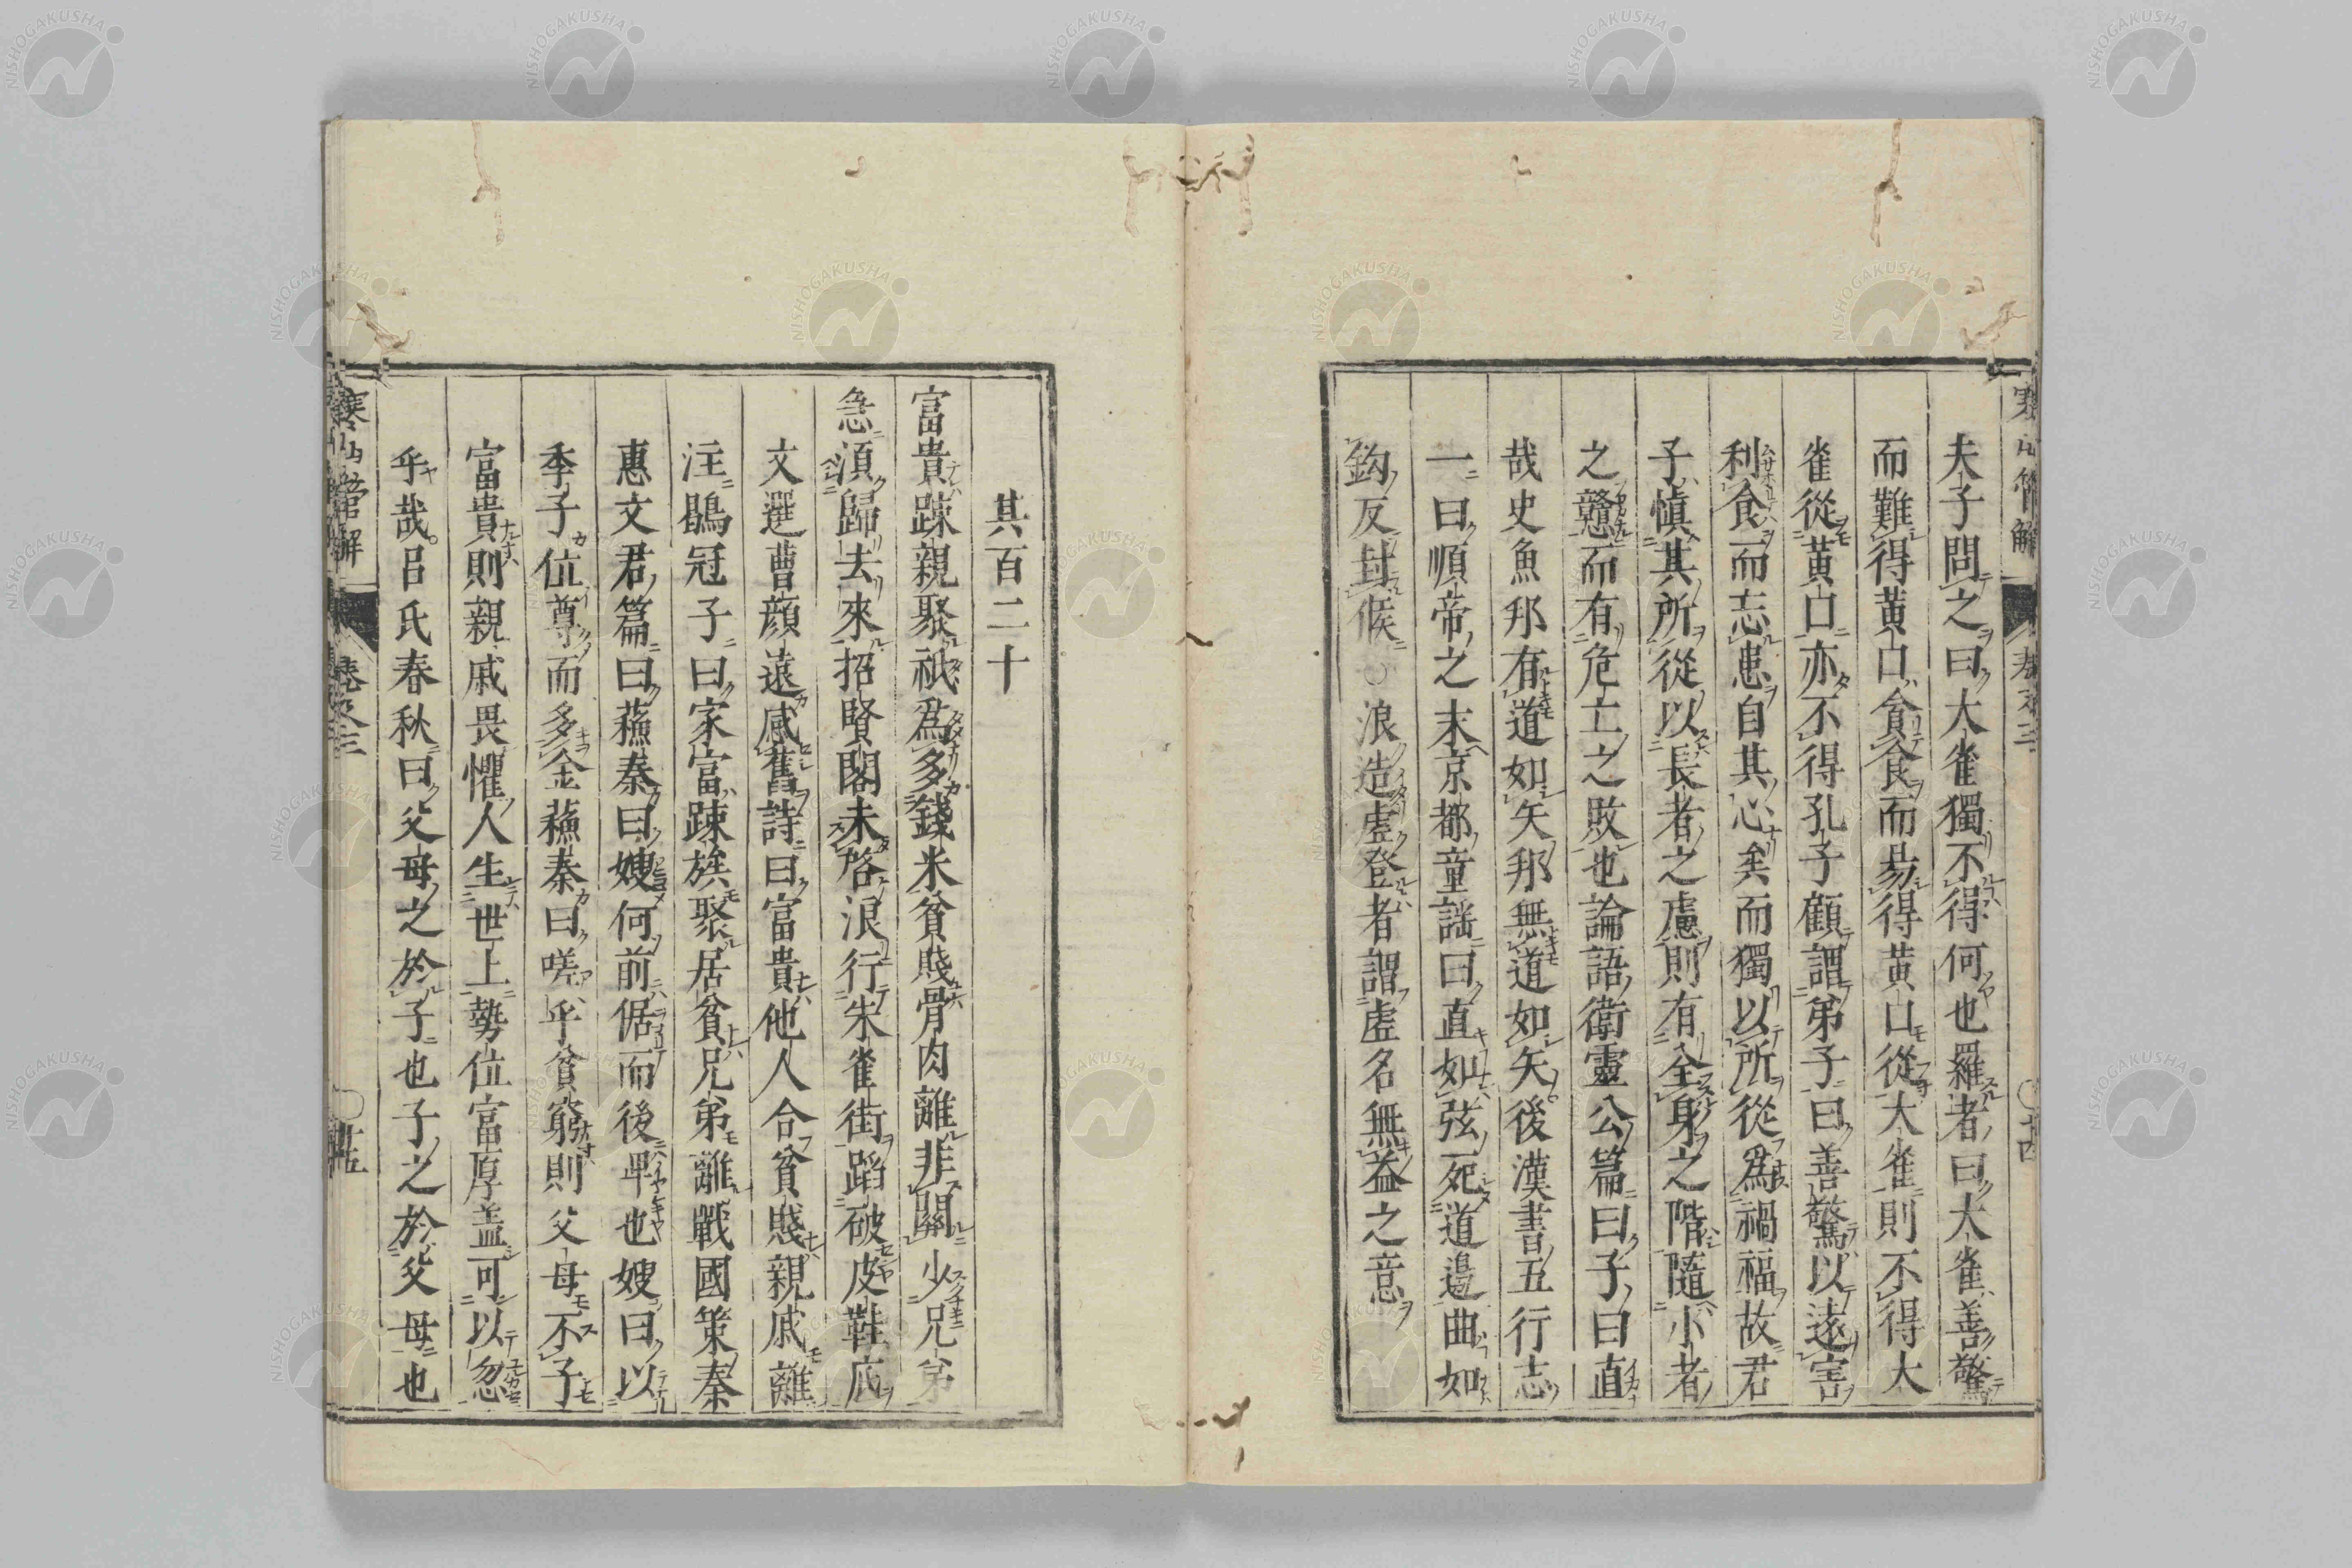 夫子問之曰大雀獨不得何也羅者曰大雀善驚
而難得黄口貪食而易得黄口從大雀則不得大
雀從黄口亦不得孔子顧謂弟子曰善驚以遠害
利食而忘患自其心矣而獨以所從爲禍福故君
子愼其所從以長者之慮則有全身之階隨小者
之戇而有危亡之敗也論語衛靈公篇曰子曰直
哉史魚邦有道如矢邦無道如矢後漢書五行志
一曰順帝之末京都童謡曰直如弦死道邉曲如
鈎反封侯○浪造虚登者謂虚名無益之意
其百二十
富貴踈親聚祇爲多錢米貧賤骨肉離非關少兄弟
急須歸去來招賢閣未啓浪行朱雀街蹈破皮鞋底
文選曹顔遠感舊詩曰富貴他人合貧賤親戚離
注鶡冠子曰家富踈族聚居貧兄弟離戰國策秦
惠文君篇曰蘓秦曰嫂何前倨而後卑也嫂曰以
季子位尊而多金蘓秦曰嗟乎貧窮則父母不子
富貴則親戚畏懼人生世上勢位富厚盖可以忽
乎哉吕氏春秋曰父母之於子也子之於父母也
寒山詩管解 卷之三 ○十五
NISHOGAKUSHA